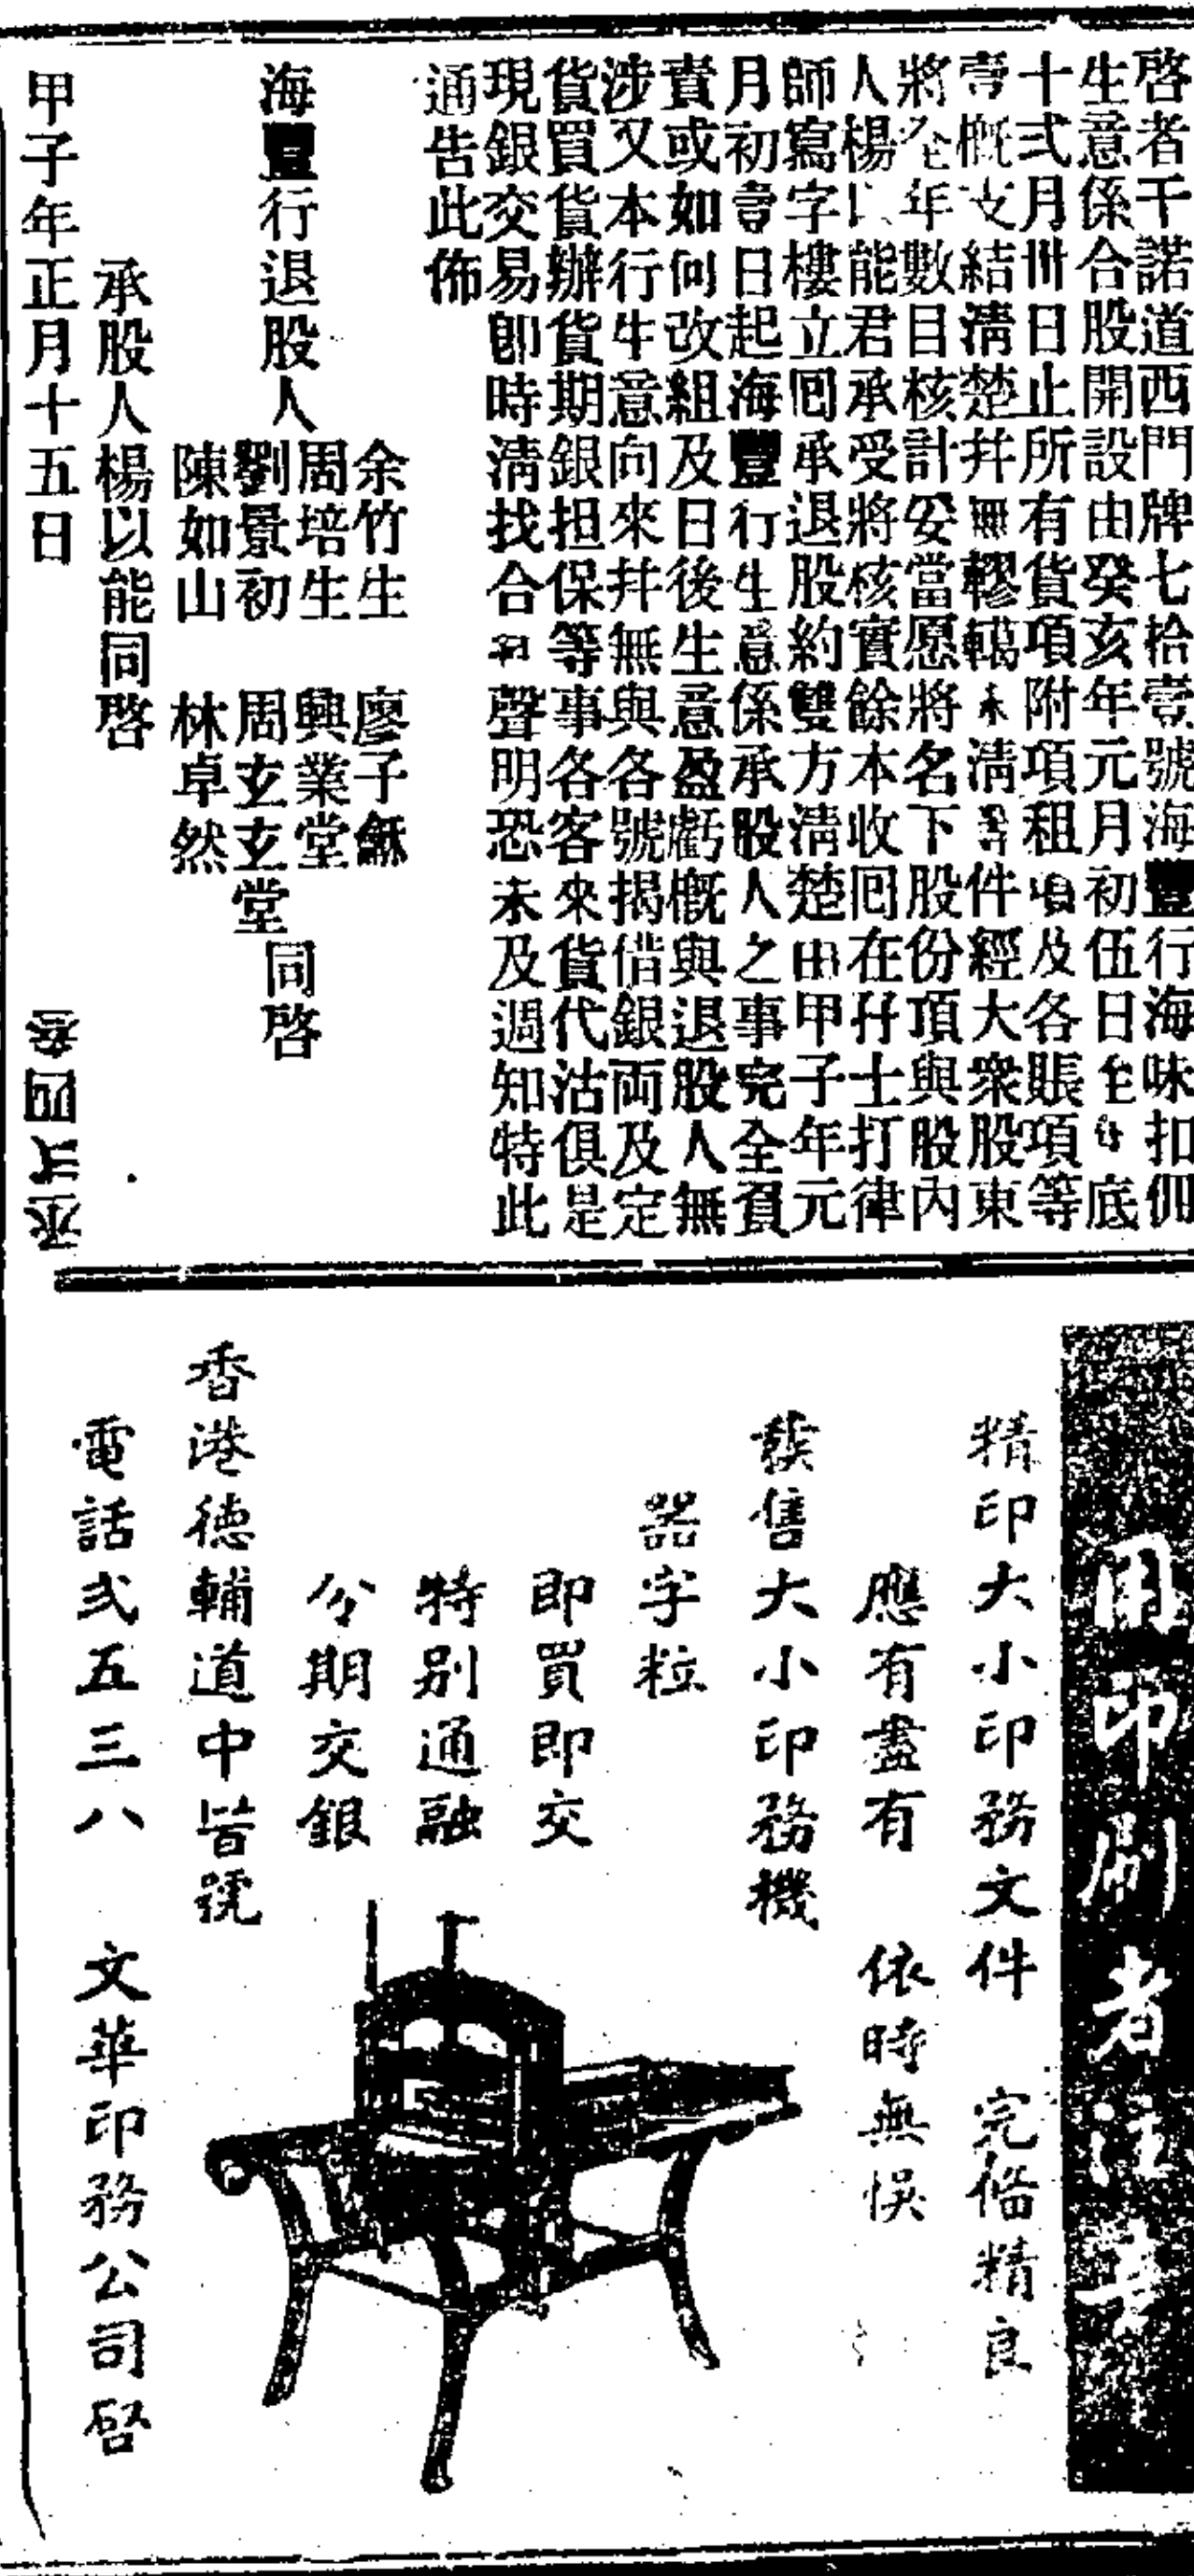 啓者干諾道西門牌七拾壹號海豐行海味扣佣
生意係合股開設由癸亥年元月初伍日至年底
十弍月卅日止所有貨項附項租項及各賬項等
壹概支結清楚幷無轇轕未清等件經大衆股東
將全年數目核計妥當愿將名下股份頂與股內
人楊以能君承受將核實餘本收回在孖士打律
師寫字樓立回承退股約雙方清楚由甲子年元
月初壹日起海豐行生意係承股人之事完全負
責或如何改組及日後生意盈虧概與退股人無
涉又本行生意向來幷無與各號揭借銀両及定
貨買貨辦貨期銀担保等事各客來貨代沽俱是
現銀交易即時清找合和聲明恐未及週知特此
通告此佈
余竹生 廖子穌
周培生 興業堂
海豐行退股人 劉景初 周玄玄堂 同啓
陳如山 林卓然
承股人楊以能同啓
甲子年正月十五日
丞弍四叁
用印刷者注意
精印大小印務文件 完俻精良
應有盡有 依時無悞
發售大小印務機
器字粒
即買即交
特別通融
分期交銀
香港德輔道中皆號
電話弍五三八 文華印務公司啓